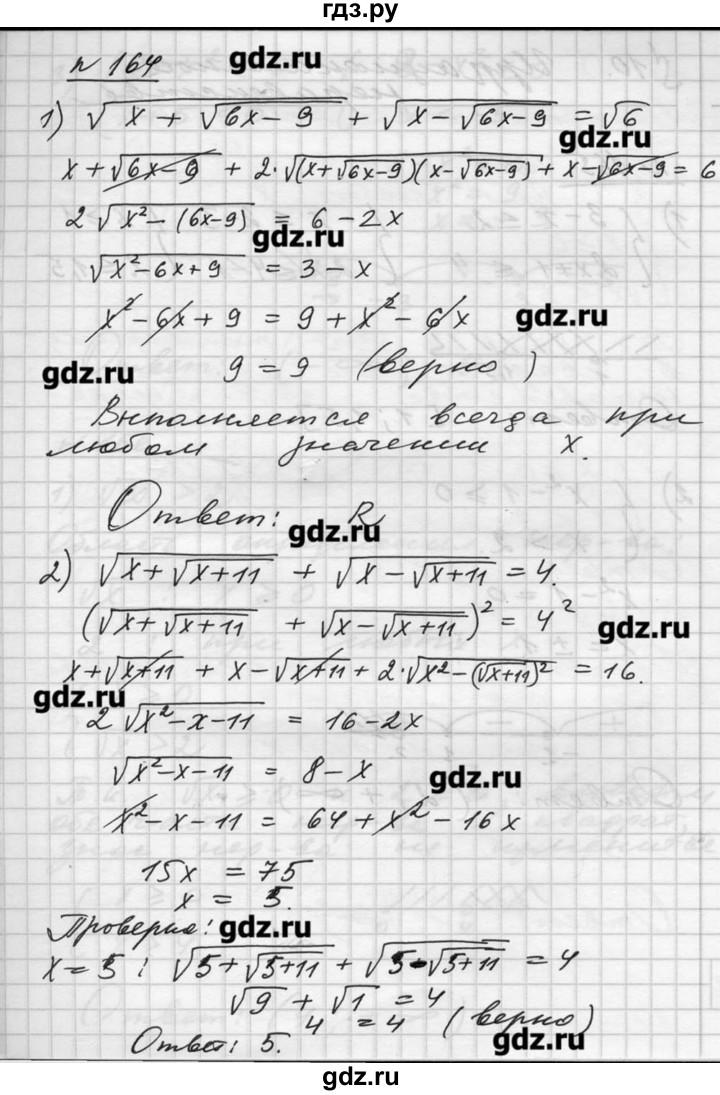 гдз.ру
n 164 gdz.ru
1) √(x + √(6x - 9)) + √(x - √(6x-9)) = √6
gdz.ru
x + √(6x - 9) + 2·√((x+√(6x-9))(x-√(6x-9))) + x-√(6x-9) = 6
2√(x² - (6x-9)) = 6 - 2x
gdz.ru
√(x² - 6x + 9) = 3 - x
x² - 6x + 9 = 9 + x² - 6x gdz.ru
gdz.ru 9 = 9 (верно)
Выполняется всегда при
любом значении x.
Ответ: R gdz.ru
2) √(x + √(x+11)) + √(x - √(x+11)) = 4.
(√(x + √(x+11)) + √(x - √(x+11)))² = 4² gdz.ru
x + √(x+11) + x - √(x+11) + 2·√(x² - (√(x+11))²) = 16.
gdz.ru
2√(x² - x - 11) = 16 - 2x
√(x² - x - 11) = 8 - x gdz.ru
x² - x - 11 = 64 + x² - 16x
15x = 75
x = 5.
Проверка: gdz.ru
x = 5 : √(5 + √(5+11)) + √(5 - √(5+11)) = 4
√9 + √1 = 4
4 = 4 (верно)
Ответ: 5. gdz.ru
gdz.ru